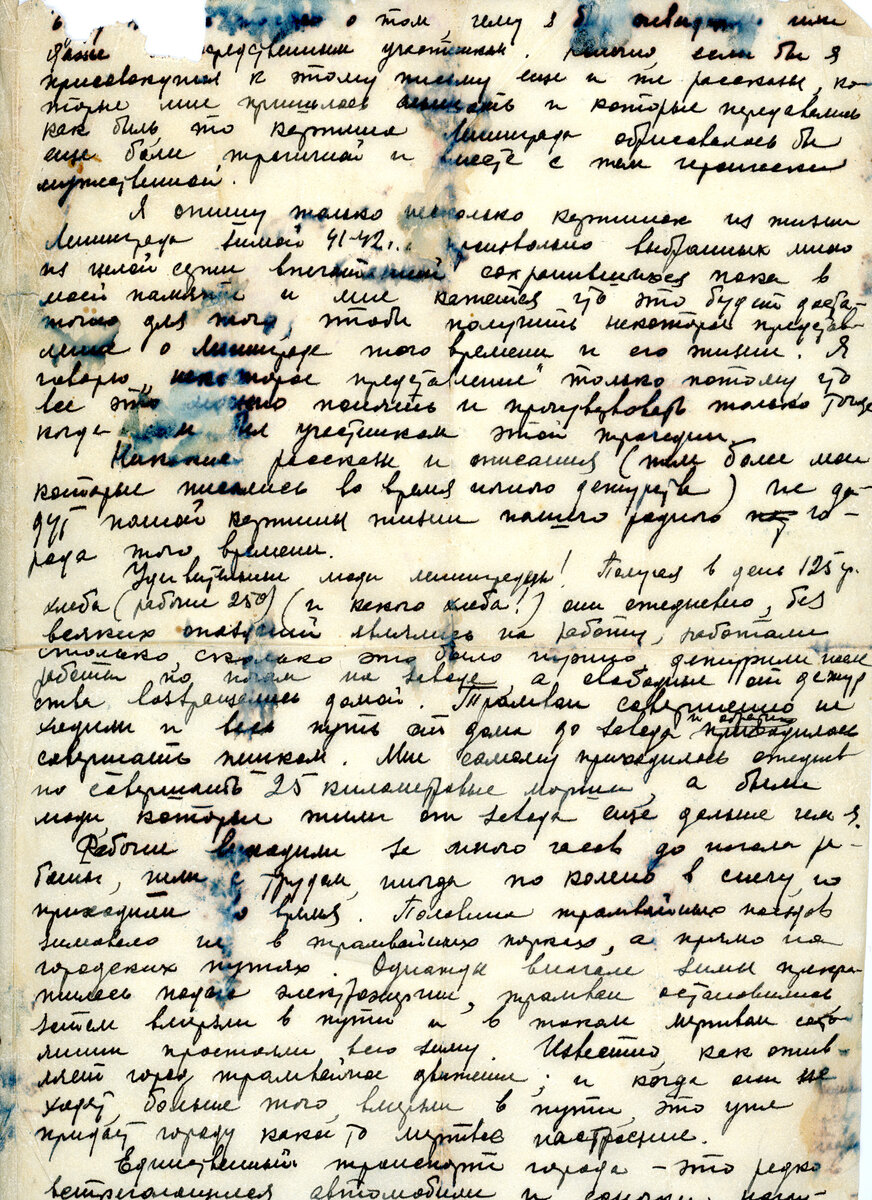 о том, чему я был очевидцем или
даже непосредственным участником. Конечно если бы я
присовокупил к этому письму еще и те рассказы, ко-
торые мне пришлось слышать и которые передавались
как быль, то картина Ленинграда обрисовалась бы
еще более трагичной и вместе с тем героически
мужественной.
Я опишу только несколько картинок из жизни
Ленинграда зимой 41-42 г., произвольно выбранных мною
из целой серии впечатлений сохранившихся пока в
моей памяти и мне кажется что это будет доста-
точно для того, чтобы получить некоторое представ-
ление о Ленинграде того времени и его жизни. Я
говорю "некоторое представление" только потому что
все это можно понять и прочувствовать только тогда
когда сам был участником этой трагедии.
Никакие рассказы и описания (тем более мои
которые писались во время ночного дежурства) не да-
дут полной картины жизни нашего родного го-
рода того времени.
Удивительные люди ленинградцы! Получая в день 125 гр.
хлеба (рабочие 250) (и какого хлеба!) они ежедневно, без
всяких опозданий являлись на работу, работали
столько сколько это было нужно, дежурили после
работы по ночам на заводе а свободные от дежур
ства возвращались домой. Трамваи совершенно не
ходили и весь путь от дома до завода и обратно приходилось
совершать пешком. Мне самому приходилось ежеднев
но совершать 25 километровые марши, а были
люди которые жили от завода еще дальше чем я.
Рабочие выходили за много часов до начала ра-
боты, шли с трудом, иногда по колено в снегу, но
приходили во время. Половина трамвайных поездов
зимовало не в трамвайных парках, а прямо на
городских путях. Однажды вначале зимы прекра-
тилась подача электроэнергии, трамваи остановились
затем вмерзли в пути и в таком мертвом состо
янии простояли всю зиму. Известно, как ожив
ляет город трамвайное движение, и когда они не
ходят больше того, вмерзли в пути, это уже
придает городу какое то мертвое настроение.
Единственный транспорт города - это редко
встречающиеся автомобили и